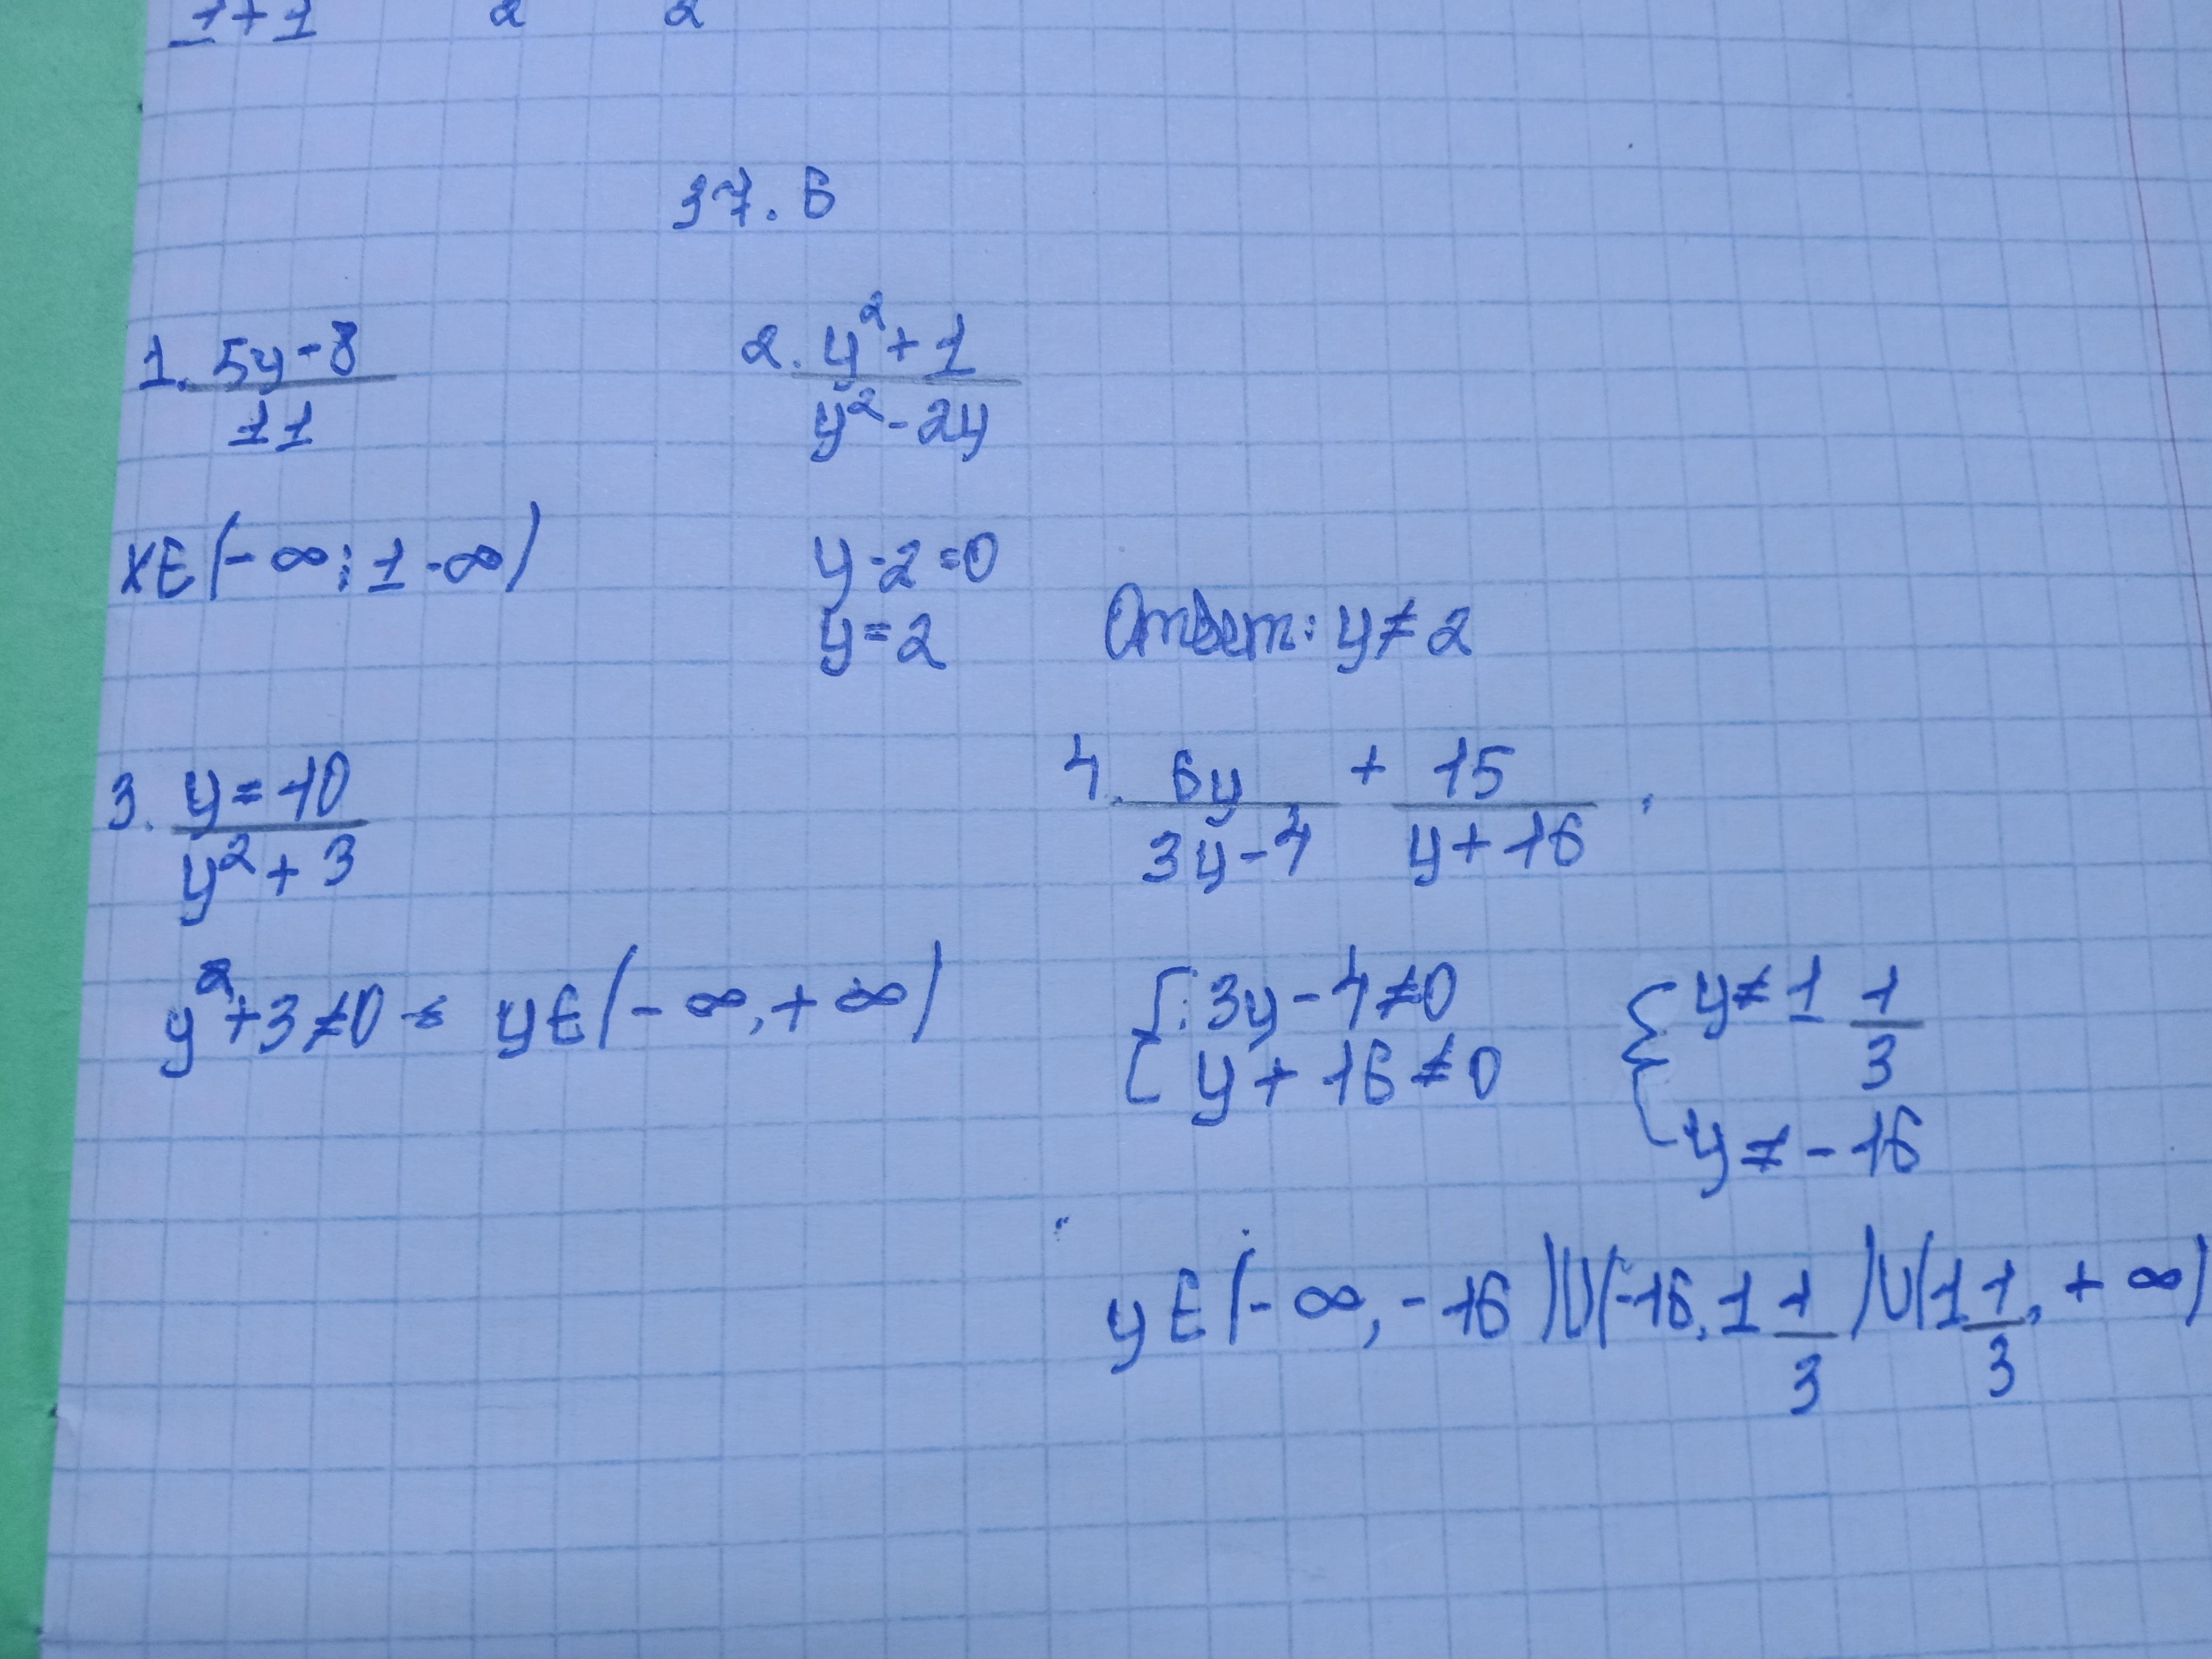 1+1 2 2
37.6
1. 5y-8
11
2. y²+1
y²-2y
xE(-∞; 1-∞)
y-2=0
y=2
Ответ: y≠2
3. y=10
y²+3
4. 6y + 15
3y-4 y+16
y²+3≠0 yE(-∞,+∞)
{3y-4≠0
y+16≠0
{y≠1 1
3
y≠-16
yE(-∞,-16)U(-16,1 1/3)U(1 1/3,+∞)